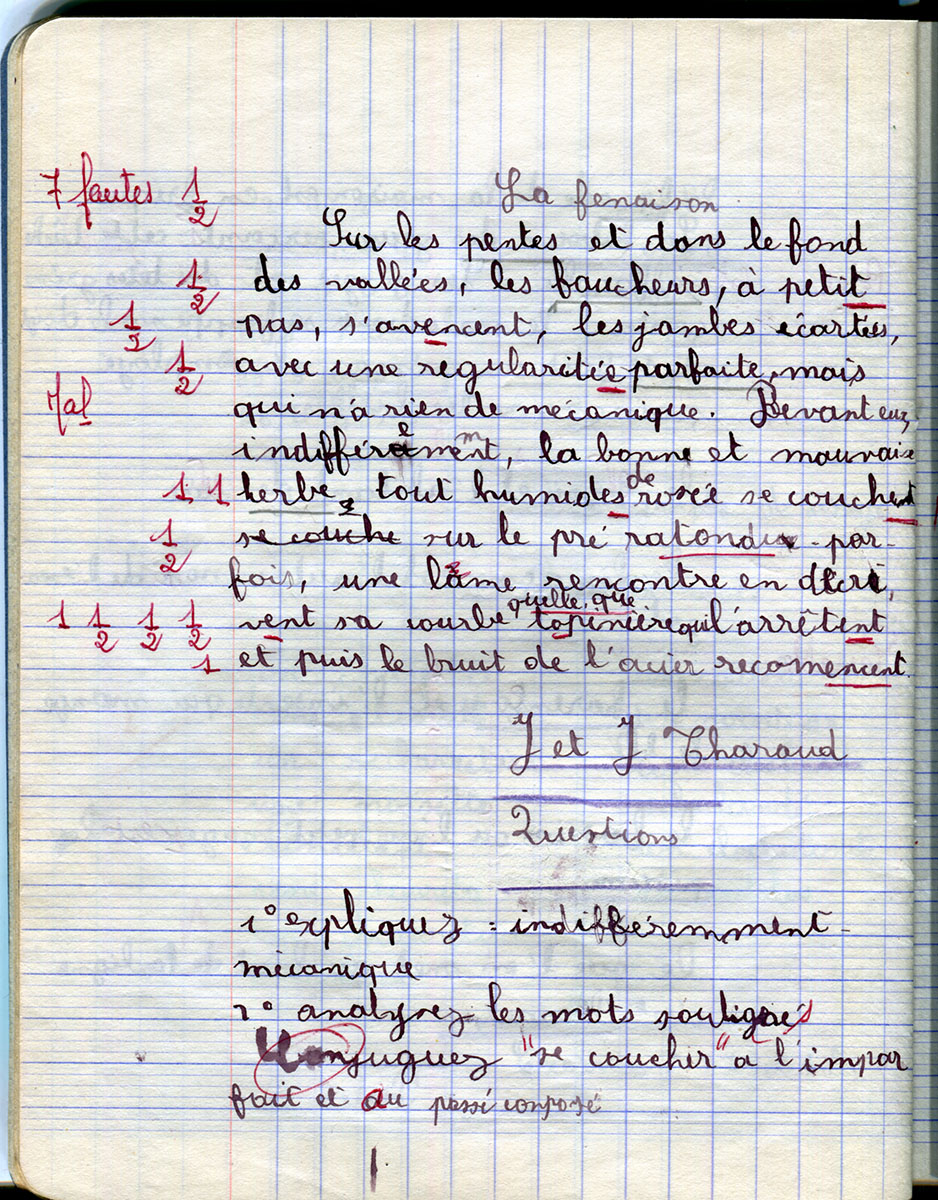 7 fautes 1/2
La fenaison
Sur les pentes et dans le fond
1/2 des vallées, les faucheurs, à petit
1/2 pas, s'avencent, les jambes écartées,
1/2 avec une regularitée parfaite, mais
Mal qui n'a rien de mécanique. Devant eux,
indifféremment, la bonne et mauvaise
1 1 herbe, tout humides de rosée se couchent
1/2 se couche sur le pré ratondu. par-
fois, une lame rencontre en décri,
quelle que
1 1/2 1/2 1/2 vent sa courbe topinière qui l'arrêtent
1 et puis le bruit de l'acier recomencent.
J et J Tharaud
Questions
1° expliquez : indifféremment -
mécanique
2° analysez les mots soulignés
Conjuguez "se coucher" a l'impar
fait et au passé composé